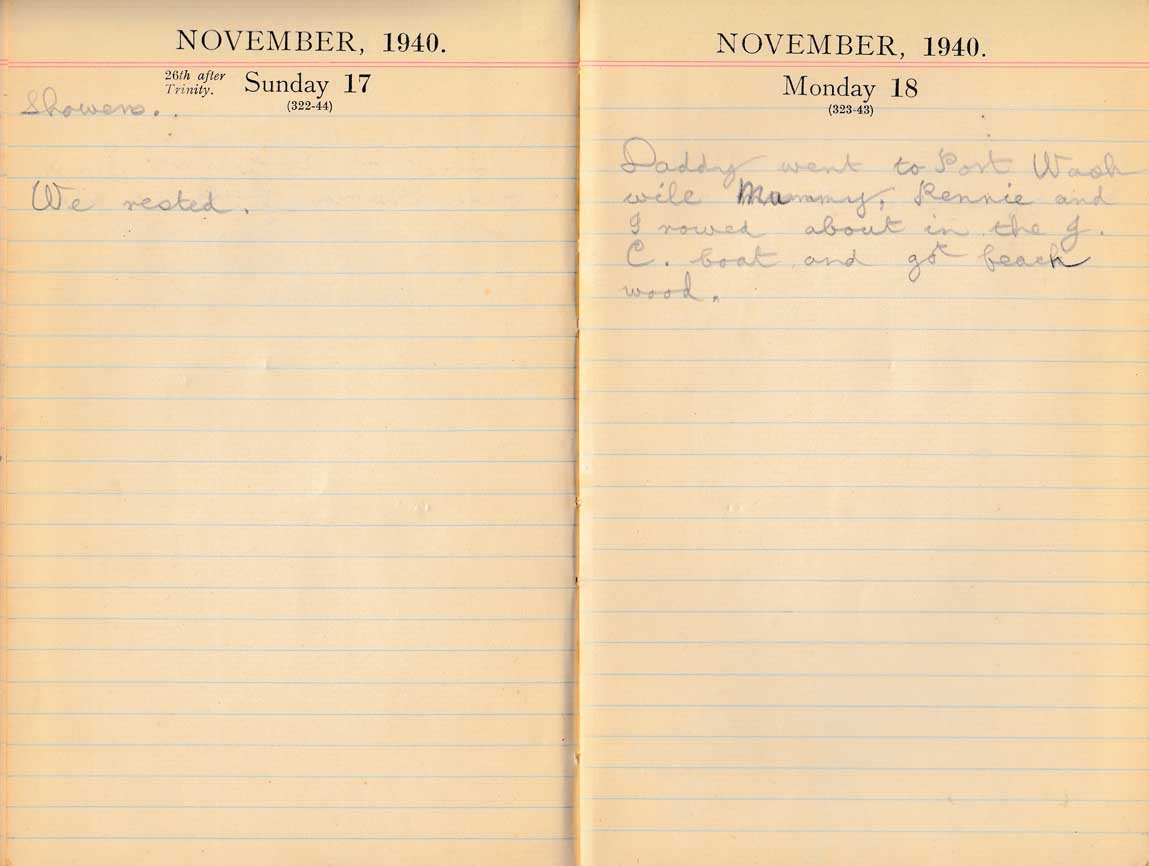 NOVEMBER, 1940.
26th after
Trinity.
Sunday 17
(322-44)
Showers.
We rested.
NOVEMBER, 1940.
Monday 18
(323-43)
Daddy went to Port Wash
wile Mummy, Rennie and
I rowed about in the J.
C. boat and got beach
wood.